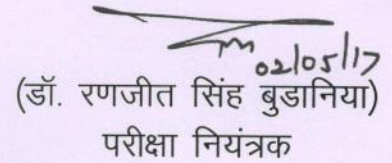 02/05/17
(डॉ. रणजीत सिंह बुडानिया)
परीक्षा नियंत्रक